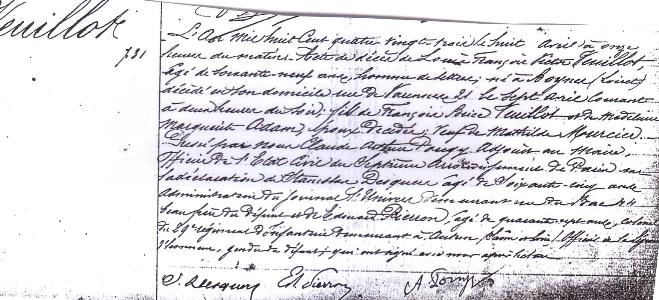 Veuillot
731
L'an Mil huit Cent quatre vingt trois le huit avril à onze
heures du matin. Acte de décès de Louis François Victor Veuillot
âgé de soixante neuf ans, homme de lettres; né à Boynes (Loiret)
décédé en son domicile rue de Varennes 21 le sept avril courant
à deux heures du soir; fils de François Brice Veuillot et de Madeleine
Marguerite Adam, époux décédés; Veuf de Mathilde Murcier
Dressé par nous Claude Arthur Adjoint au Maire,
Officier de l'Etat Civil du Septième Arrondissement de Paris sur
la déclaration de Stanislas âgé de soixante cinq ans
Administrateur du journal l'Univers demeurant rue du Bac 44
beau frère du défunt et de Edouard Pierron, âgé de quarante sept ans, colonel
du 29e régiment d'Infanterie demeurant à Autun (Saône et Loire) Officier de la Légion
d'honneur, gendre du défunt; qui ont signé avec nous après lecture
Ed. Pierron